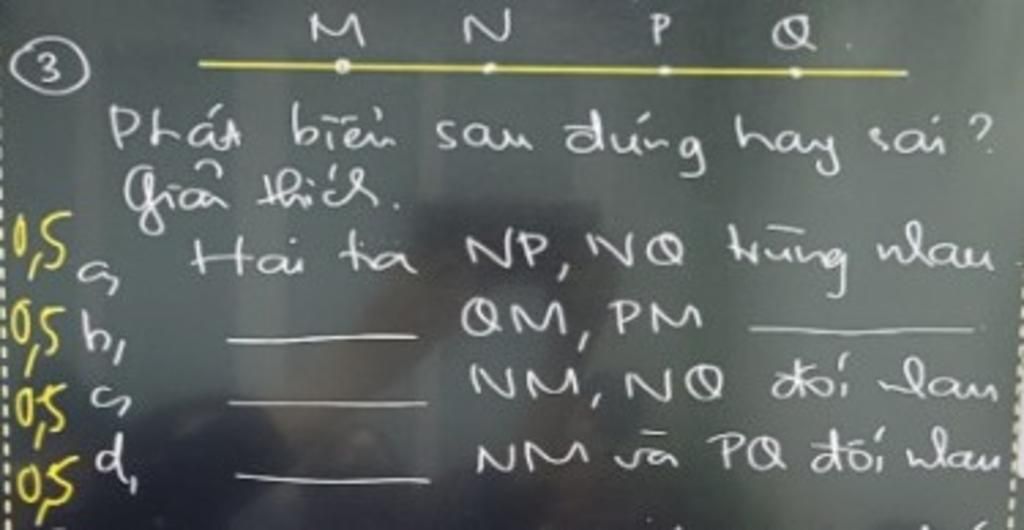 M N P Q
3
Phát biểu sau đúng hay sai?
Giải thích.
0,5 a, Hai tia NP, NQ trùng nhau
0,5 b, QM, PM
0,5 c, NM, NQ đối nhau
0,5 d, NM và PQ đối nhau